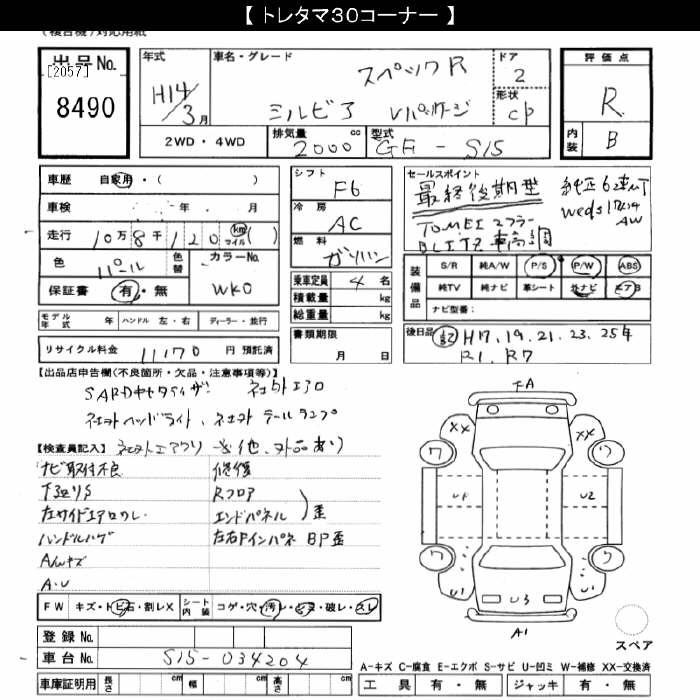 【 トレタマ30コーナー 】
(複合機)対応用紙
出品No.
[2057]
8490
年式
H14/3月
車名・グレード
スペックR
シルビア Vパッケージ
ドア
2
形状
CP
評価点
R
内装
B
2WD・4WD
排気量
2000
cc
型式
GF - S15
車歴 自家用・( )
車検 年 . 月
走行 10万8千120 km マイル ( )
色 パール 色替 カラーNo. WK0
保証書 有・無
モデル年式 年 ハンドル 左・右 ディーラー・並行
リサイクル料金 11170 円 預託済
シフト
F6
冷房
AC
燃料
ガソリン
乗車定員 4 名
積載量 kg
総重量 kg
書類期限
月 日
セールスポイント
最終後期型
純正6速MT
TOMEIマフラー
BLITZ車高調
weds17
AW
装備品
S/R 純A/W P/S P/W ABS
純TV 純ナビ 革シート 外ナビ エアB
ナビ型番:
後日品 記 H17.19.21.23.25年
R1.R7
【出品店申告欄(不良箇所・欠品・注意事項等)】
社外エアロ
社外ヘッドライト、社外テールランプ
【検査員記入】 社外エアクリ 其他、外品あり
ナビ取付不良
下廻りS
左サイドエアロワレ.
ハンドルハゲ
A/Wキズ
A.U
修復
Rフロア
エンドパネル
歪
左右Fインパネ BP歪
FW キズ・トビ石・割レX シート内装 コゲ・穴・汚レ・ヒビ・破レ・スレ
登録 No.
車台 No. S15-034204
車庫証明用 長さ cm 幅 cm 高さ cm
FA
XX XX
ワ ワ
U1 U2
ワ ワ
U1 U3 U1
A1
スペア
A-キズ C-腐食 E-エクボ S-サビ U-凹ミ W-補修 XX-交換済
工具 有・無 ジャッキ 有・無